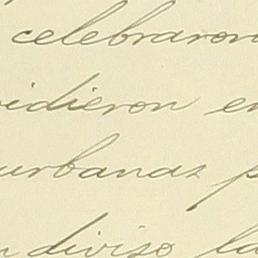 celebraron
idieron en
urbanas p
n diviso la